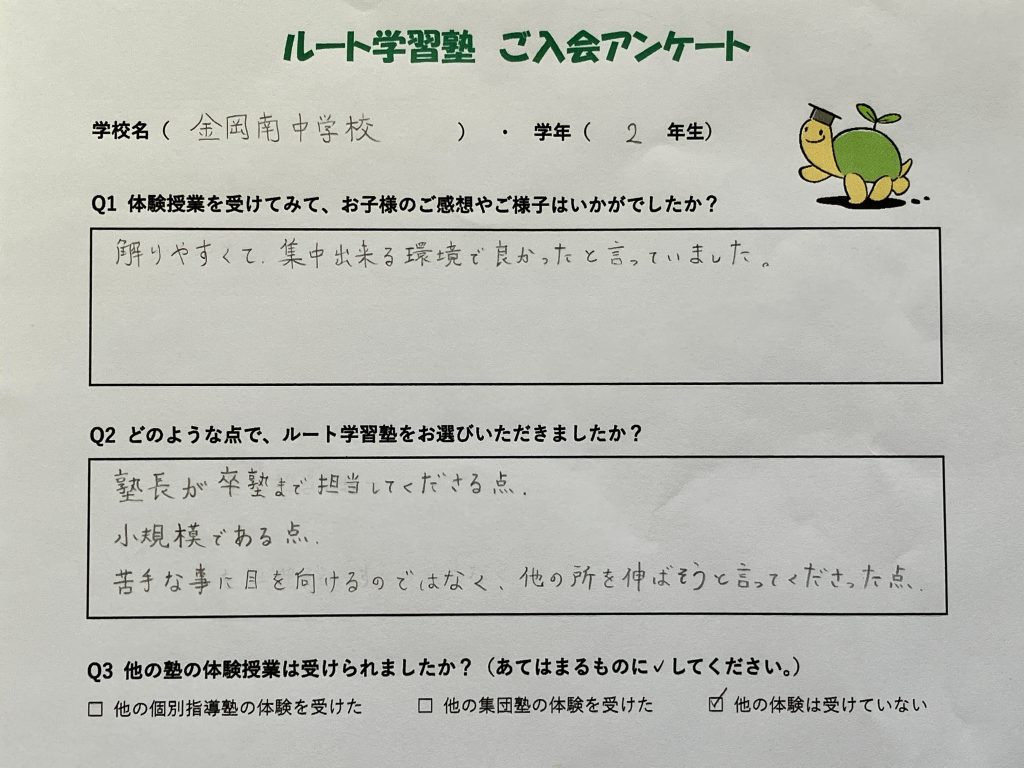 ルート学習塾 ご入会アンケート
学校名（ 金岡南中学校 ）・ 学年（ 2 年生）
Q1 体験授業を受けてみて、お子様のご感想やご様子はいかがでしたか？
解りやすくて、集中出来る環境で良かったと言っていました。
Q2 どのような点で、ルート学習塾をお選びいただきましたか？
塾長が卒塾まで担当してくださる点、
小規模である点、
苦手な事に目を向けるのではなく、他の所を伸ばそうと言ってくださった点、
Q3 他の塾の体験授業は受けられましたか？（あてはまるものに✓してください。）
☐ 他の個別指導塾の体験を受けた ☐ 他の集団塾の体験を受けた ☑ 他の体験は受けていない